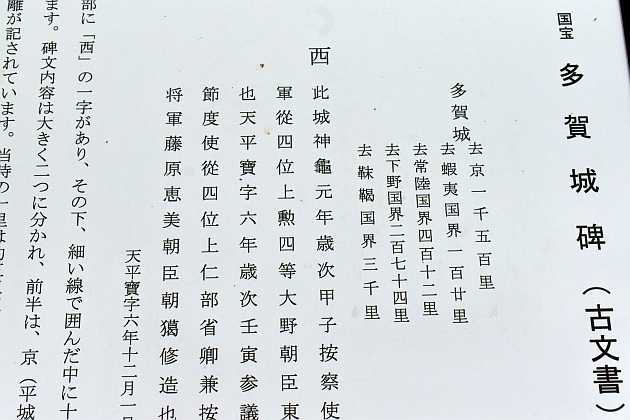 国宝
多賀城碑（古文書）
去京一千五百里
多賀城 去蝦夷国界一百廿里
去常陸国界四百十二里
去下野国界二百七十四里
去靺鞨国界三千里
西
此城神龜元年歳次甲子按察使
軍從四位上勲四等大野朝臣東
也天平寶字六年歳次壬寅参議
節度使從四位上仁部省卿兼按
将軍藤原恵美朝臣朝獦修造也
天平寶字六年十二月一日
部に「西」の一字があり、その下、細い線で囲んだ中に十
ます。碑文内容は大きく二つに分かれ、前半は、京（平城
離が記されています。当時の一里は約